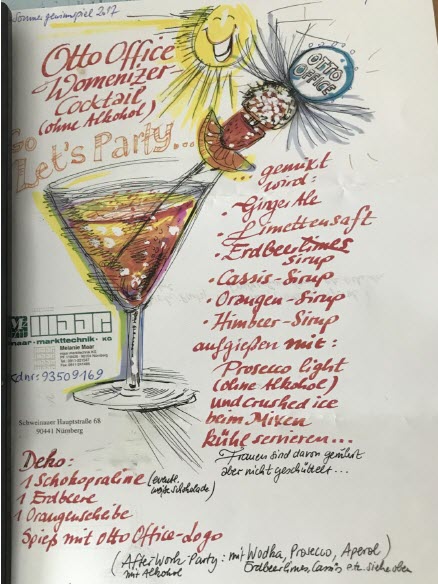 Sommergewinnspiel 2017
Otto Office
Womenizer-
Cocktail
(ohne Alkohol)
OTTO
OFFICE
Go
Let's Party...
... gemixt
wird:
• Ginger Ale
• Limettensaft
• Erdbeerlimes
sirup
• Cassis-Sirup
• Orangen-Sirup
• Himbeer-Sirup
aufgießen mit:
Prosecco light
(ohne Alkohol)
und crushed ice
beim Mixen
kühl servieren...
Frauen sind davon gerührt
aber nicht geschüttelt...
maar
maar · markttechnik · KG
Melanie Maar
maar-markttechnik KG
Kdnr: 93509169
Schweinauer Hauptstraße 68
90441 Nürnberg
Deko:
1 Schokopraline (eventl.
weiße Schokolade)
1 Erdbeere
1 Orangenscheibe
Spieß mit Otto Office-Logo
(After Work-Party: mit Wodka, Prosecco, Aperol)
mit Alkohol Erdbeerlimes, Cassis, etc. siehe oben